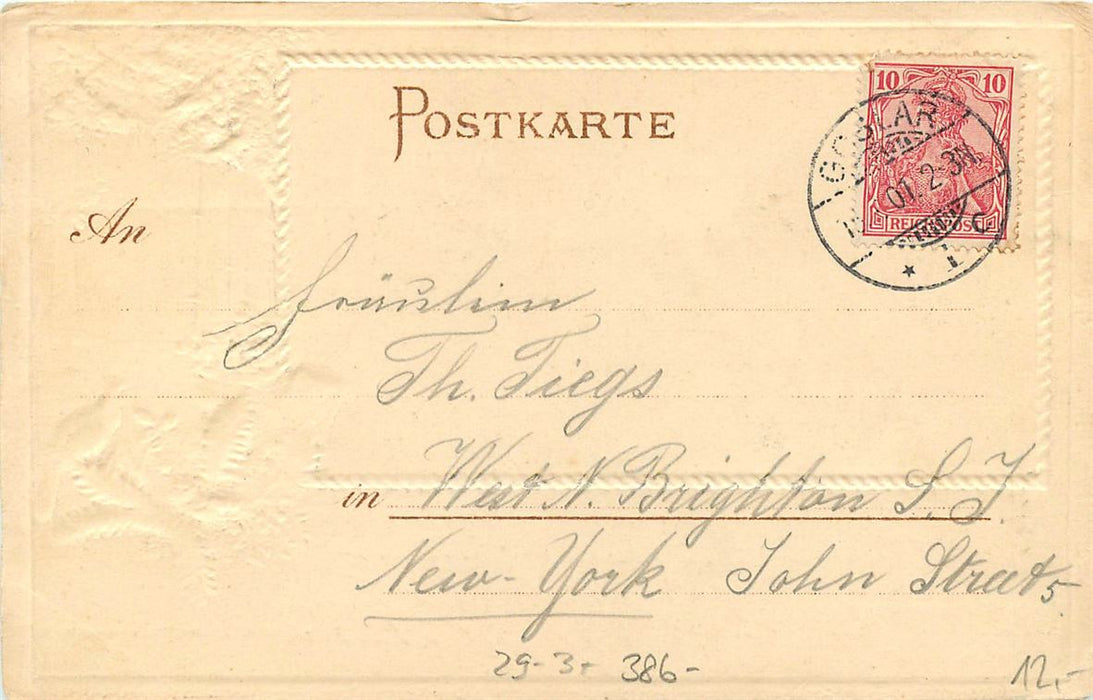 POSTKARTE
10 10
GOSLAR
01. 2-3N.
REICHSPOST
* 1 c
An
Fräulein
Th. Tiegs
in West N. Brighton S. I.
New-York John Street 5
29-3- 386-
12,-